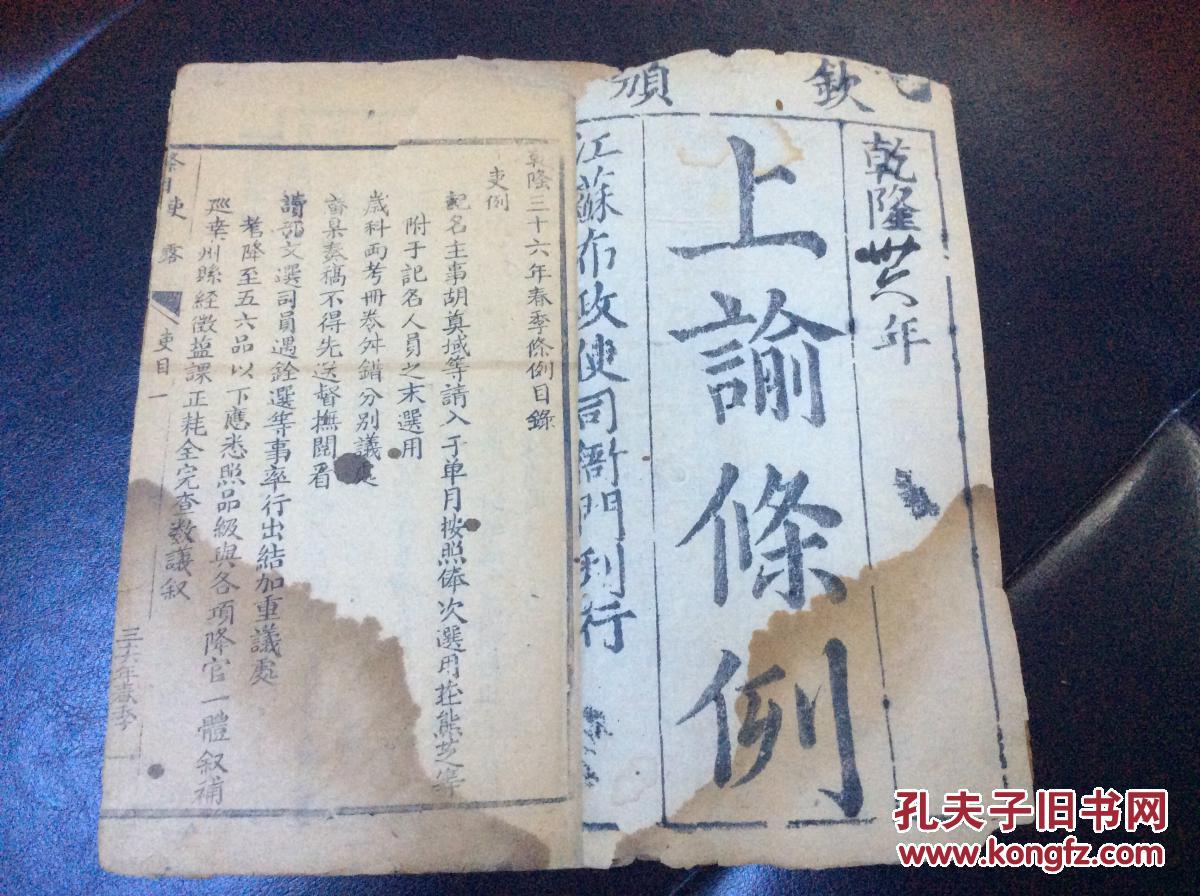 欽頒
乾隆卅六年
上諭條例
江蘇布政使司衙門刊行
乾隆三十六年春季條例目錄
吏例
記名主事胡奠域等請入于单月按照俸次選用莊熊芝等
附于記名人員之末選用
歲科两考冊卷舛錯分别議處
審具奏稿不得先送督撫閱看
讀部文選司員遇銓選等事率行出結加重議處
考降至五六品以下應悉照品級與各項降官一體叙補
廵幸州縣經徵益課正耗全完查数議叙
吏目 一
三十六年春季 一
孔夫子旧书网
www.kongfz.com